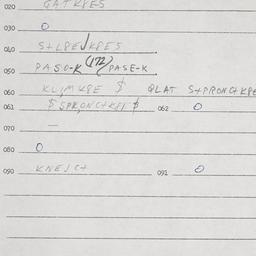 020 GATKPES
030 O
040 S+LPE/KPES
050 PASO-K (172) PASE-K
060 KLIMKPE $ QLAT S+PRONC+KPE
061 $ SPRONC+KPI $ 062 O
070 —
080 O
090 KNEJC+ 091 O